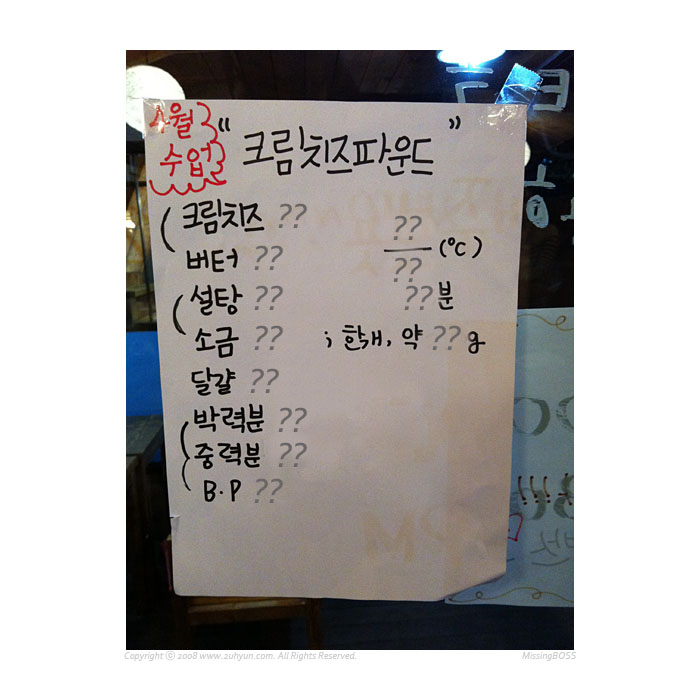 4월
수업
" 크림치즈파운드 "
크림치즈 ??
버터 ??
설탕 ??
소금 ??
달걀 ??
박력분 ??
중력분 ??
B.P ??
??
?? (°C)
??분
; 한개, 약 ?? g
Copyright ⓒ 2008 www.zuhyun.com. All Rights Reserved.
MissingBOSS